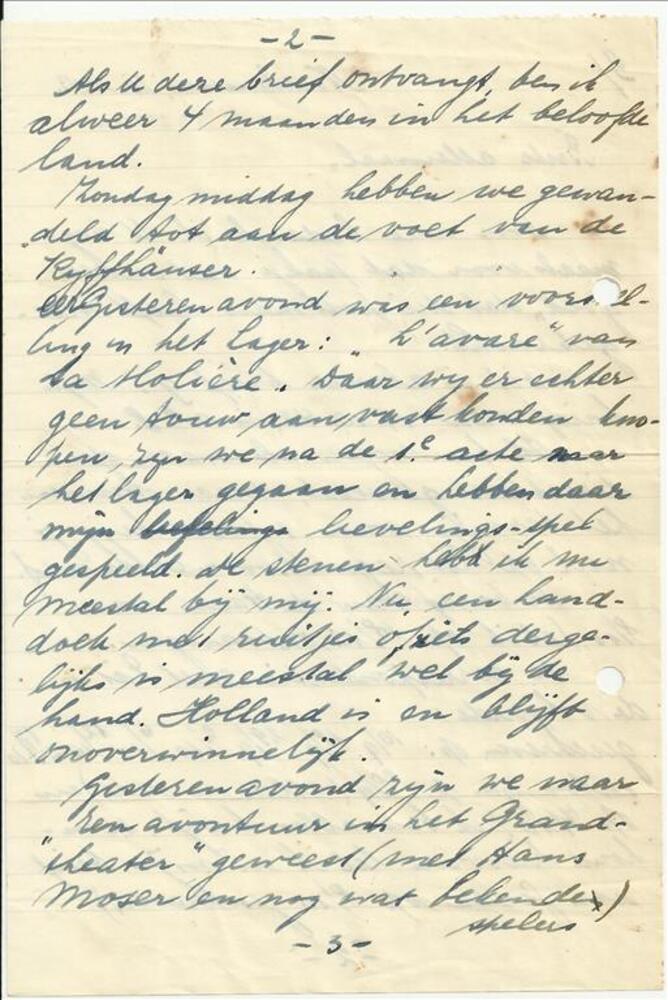 -2-
Als U deze brief ontvangt, ben ik
alweer 4 maanden in het beloofde
land.
Zondag middag hebben we gewan-
deld tot aan de voet van de
Kyffhäuser.
eergisteren avond was een voorstel-
ling in het lager: "L'avare" van
La Molière. Daar wij er echter
geen touw aan vast konden kno-
pen, zijn we na de 1e acte naar
het lager gegaan en hebben daar
mijn lievelings-spel
gespeeld. De stenen heb ik nu
meestal bij mij. Nu, een hand-
doek met ruitjes of iets derge-
lijks is meestal wel bij de
hand. Holland is en blijft
onoverwinnelijk.
Gisteren avond zijn we naar
"Een avontuur in het Grand-
theater" geweest (met Hans
Moser en nog wat bekende)
spelers
-3-